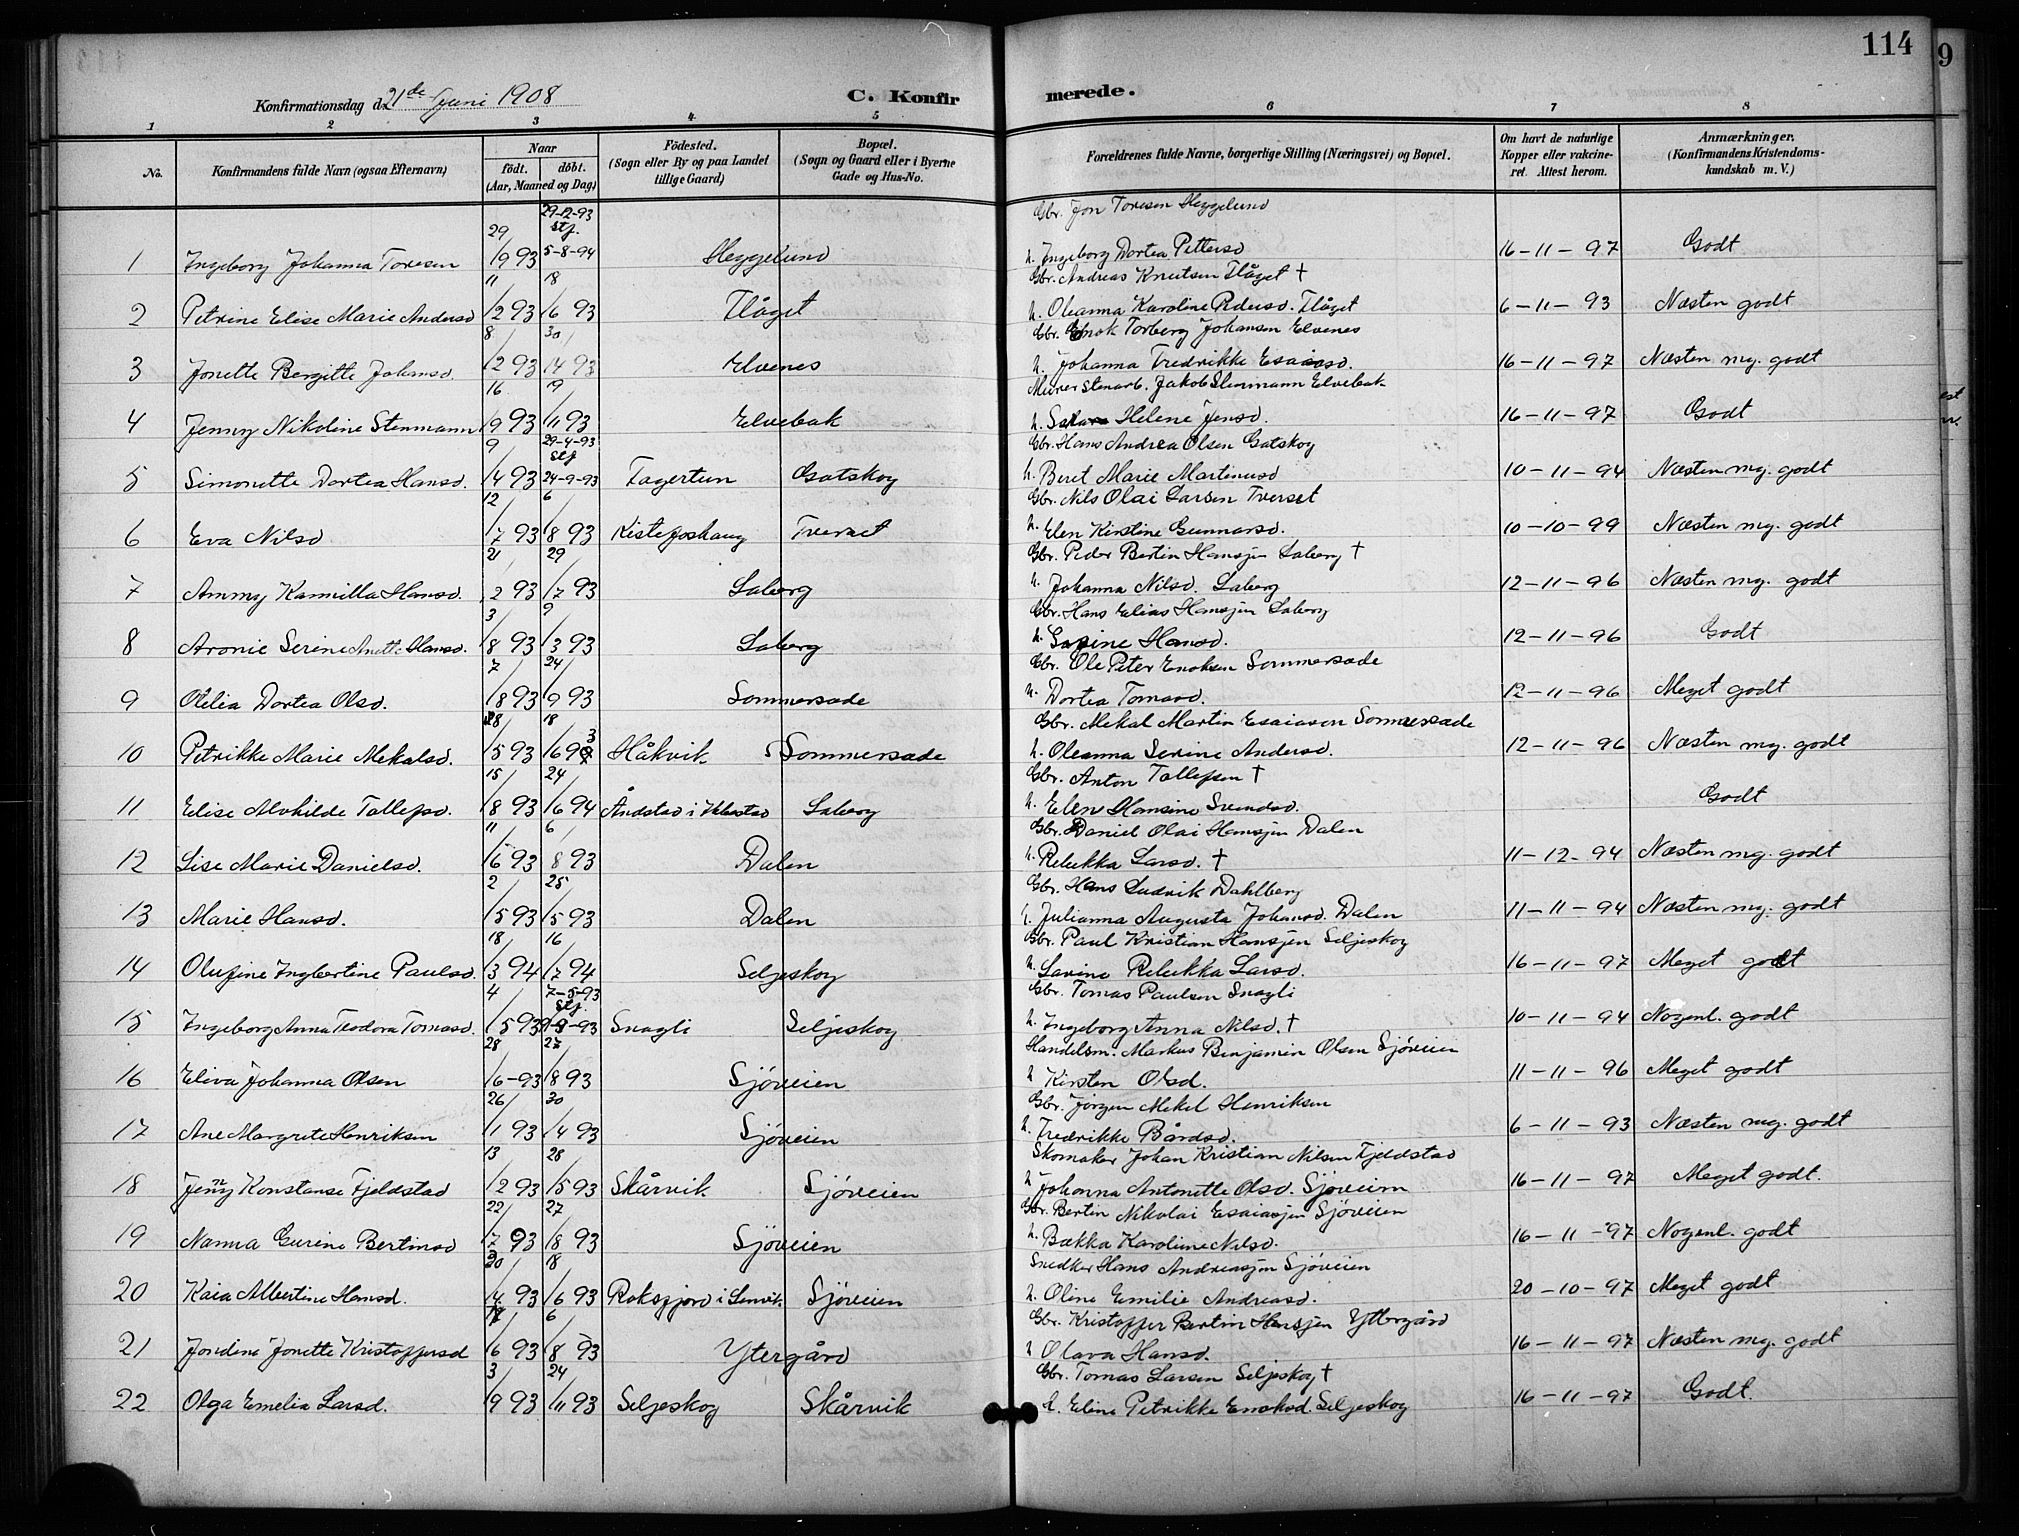 114
9
Konfirmationsdag d. 21de Juni 1908
C. Konfirmerede.
1 2 3 4 5 6 7 8
No.
Konfirmandens fulde Navn (ogsaa Efternavn)
Naar
födt. döbt.
(Aar, Maaned og Dag)
Födested.
(Sogn eller By og paa Landet tillige Gaard)
Bopæl.
(Sogn og Gaard eller i Byerne Gade og Hus-No.
Forældrenes fulde Navne, borgerlige Stilling (Næringsvei) og Bopæl.
Om havt de naturlige Kopper eller vakcineret. Attest herom.
Anmærkninger.
(Konfirmandens Kristendomskundskab m. V.)
29-12-93 Gbr. Jon Toresen Heggelund
29 stf.
1 Ingeborg Johanna Toresen /9 93 5-8-94 Heggelund h. Ingeborg Dortea Pettersd 16-11-97 Godt
11 18 Gbr. Andreas Knutsen Flåget †
2 Petrine Elise Marie Andersd /2 93 /6 93 Flåget h. Oleanna Karoline Pedersd. Flåget 6-11-93 Næsten godt
8 30 Gbr. Enok Torberg Johansen Elvenes
3 Jonette Bergitte Johansd. /2 93 /4 93 Elvenes h. Johanna Fredrikke Esaiasd. 16-11-97 Næsten mg. godt
16 19 Murer Stenarb. Jakob Stenmann Elvebak
4 Jenny Nikoline Stenmann /9 93 /11 93 Elvebak h. Helene Jensd. 16-11-97 Godt
9 29-4-93 stf Gbr. Hans Andrea Olsen Gatskog
5 Simonette Dortea Hansd. /4 93 24-9-93 Fagertun Gatskog h. Beret Marie Martinusd 10-11-94 Næsten mg. godt
12 6 Gbr. Nils Olai Larsen Tverset
6 Eva Nilsd /7 93 /8 93 Kistefoshaug Tverset h. Elen Kirstine Gunnarsd. 10-10-99 Næsten mg. godt
21 29 Gbr. Peder Bertin Hansjen Laberg †
7 Ammy Kamilla Hansd. /2 93 /7 93 Laberg h. Johanna Nilsd. Laberg 12-11-96 Næsten mg. godt
3 9 Gbr. Hans Elias Hansjen Laberg
8 Aronie Serine Anette Hansd. /8 93 /3 93 Laberg h. Hansd. 12-11-96 Godt
7 24 Gbr. Ole Peter Enoksen Sommersæde
9 Otelia Dortea Olsd. /8 93 /9 93 Sommersæde h. Dortea Tomasd. 12-11-96 Meget godt
28 18 Gbr. Mekal Martin Esaiasen Sommersæde
10 Petrikke Marie Mekalsd. /5 93 /6 93 Håkvik Sommersæde h. Oleanna Serine Andersd. 12-11-96 Næsten mg. godt
15 24 Gbr. Anton Tollefsen †
11 Elise Alvhilde Tollefsd. /8 93 /6 94 Åndstad i Ibbestad Laberg h. Elen Hansine Svendsd. Godt
11 6 Gbr. Daniel Olai Hansjen Dalen
12 Lise Marie Danielsd. /6 93 /8 93 Dalen h. Rebekka Larsd. † 11-12-94 Næsten mg. godt
2 25 Gbr. Hans Ludvik Dahlberg
13 Marie Hansd. /5 93 /5 93 Dalen h. Julianna Augusta Johansd. Dalen 11-11-94 Næsten mg. godt
18 16 Gbr. Paul Kristian Hansjen Seljeskog
14 Olufine Ingbertine Paulsd. /3 94 /7 94 Seljeskog h. Lavine Rebekka Larsd. 16-11-97 Meget godt
4 7-5-93 Stf. Gbr. Tomas Paulsen Snagli
15 Ingeborg Anna Teodora Tomasd. /5 93 Snagli Seljeskog h. Ingeborg Anna Nilsd. † 10-11-94 Nogenl. godt
28 27 Handelsm. Markus Benjamin Olsen Sjöveien
16 Eliva Johanna Olsen /6-93 /8 93 Sjöveien h Kirsten Olsd. 11-11-96 Meget godt
26 30 Gbr. Jörgen Mekel Henriksen
17 Ane Margrete Henriksen /1 93 /4 93 Sjöveien h. Fredrikke Bårdsd. 6-11-93 Næsten mg. godt
13 28 Skomaker Johan Kristian Nilsen Fjeldstad
18 Jenny Konstanse Fjeldstad /2 93 /5 93 Skårvik Sjöveien h Johanna Antonette Olsd. Sjöveien 16-11-97 Meget godt.
22 27 Gbr. Bertin Nikolai Esaiasjen Sjöveien
19 Nanna Gurine Bertinsd /7 93 /8 93 Sjöveien h. Bækka Karoline Nilsd. 16-11-97 Nogenl. godt
20 18 Snedker Hans Andreasjen Sjöveien
20 Kaia Albertine Hansd. /4 93 /6 93 Roksfjord i Lenvik Sjöveien h. Oline Emilie Andreasd. 20-10-97 Meget godt
6 Gbr. Kristoffer Bertin Hansjen Yttergård
21 Jordine Jonette Kristoffersd /6 93 /8 93 Ytergård h Olava Hansd. 16-11-97 Næsten mg. godt
3 24 Gbr. Tomas Larsen Seljeskog †
22 Olga Emelia Larsd. /9 93 /11 93 Seljeskog Skårvik h. Eline Petrikke Enoksd. Seljeskog 16-11-97 Godt.